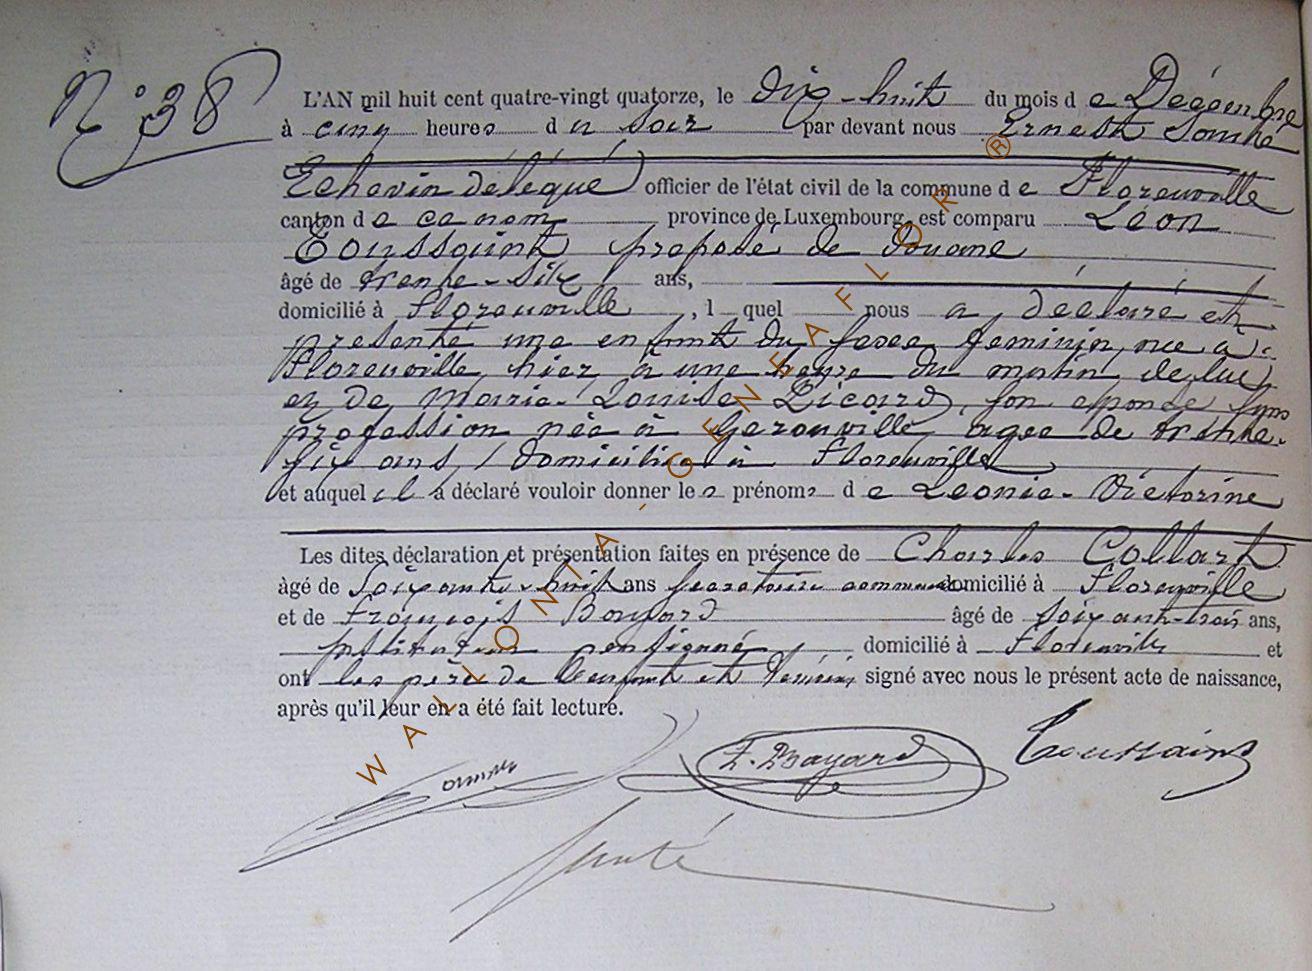 N° 38
L'AN mil huit cent quatre-vingt quatorze, le dix-huit du mois de Décembre
à cinq heures du soir par devant nous Ernest
Echevin délégué officier de l'état civil de la commune de Florenville
canton de ce nom province de Luxembourg, est comparu Léon
Toussaint préposé de douane
âgé de trente-six ans,
domicilié à Florenville, lequel nous a déclaré et
présenté une enfant du sexe féminin, née à
Florenville, hier à une heure du matin, de lui
et de Marie-Louise Picard, son épouse sans
profession née à Gérouville, agée de trente-
six ans, domiciliée à Florenville
et auquel il a déclaré vouloir donner les prénoms de Léonie-Victorine
Les dites déclaration et présentation faites en présence de Charles Collart
âgé de soixante-huit ans secrétaire communal domicilié à Florenville
et de François Bayard âgé de soixante-trois ans,
instituteur pensionné domicilié à Florenville et
ont les père de l'enfant et témoins signé avec nous le présent acte de naissance,
après qu'il leur en a été fait lecture.
F. Bayard
Toussaint
WALLONIA-GENEAFLOR ®